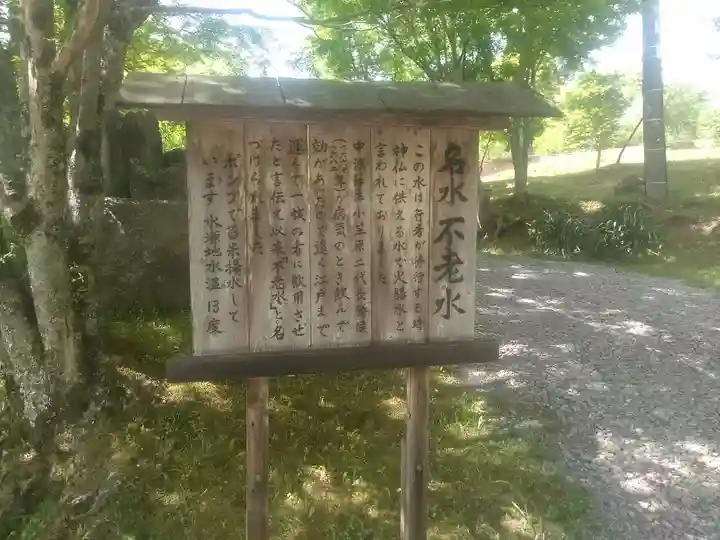 名水 不老水
この水は行者が修行する時
神仏に供える水で火勝水と
言われておりました
中津藩主小笠原二代長勝侯
が病気のとき飲んで
効があったので遠く江戸まで
運んで一族の者に飲用させ
たと言伝え以来"不老水"と名
づけられました
ポンプで百米揚水して
います 水源地水温13度